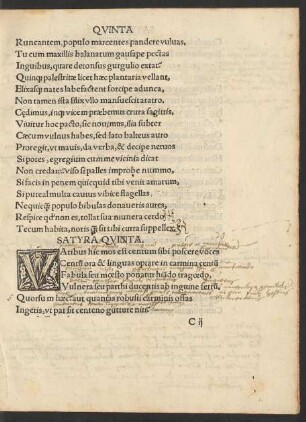 QVINTA
Runcantem, populo marcentes pandere vuluas,
Tu cum maxillis balanatum gausape pectas
Inguibus, quare detonsus gurgulio extat?
Quinq; palestritæ licet hæc plantaria vellant,
Elixasq; nates labefactent forcipe adunca,
Non tamen ista filix vllo mansuescit aratro.
Cędimus, inq; vicem præbemus crura sagittis,
Viuitur hoc pacto, sic nouimus, ilia subter
Cæcum vulnus habes, sed lato balteus auro
Prætegit, vt mauis, da verba, & decipe neruos
Si potes, egregium cum me vicinia dicat
Non credam? viso si palles improbe nummo,
Si facis in penem quicquid tibi venit amarum,
Si puteal multa cautus vibice flagellas,
Nequicq̃ populo bibulas donaueris aures,
Respice qd' non es, tollat sua munera cerdo
Tecum habita, noris q̃ sit tibi curta suppellex.
SATYRA QVINTA.
VAtibus hic mos est centum sibi poscere voces
Centũ ora & linguas optare in carmina centũ
Fabula seu mœsto ponatur hiãda tragœdo,
Vulnera seu parthi ducentis ab inguine ferrũ,
Quorsum hæc? aut quantas robusti carminis offas
Ingeris, vt par sit centeno gutture niti?
C ij